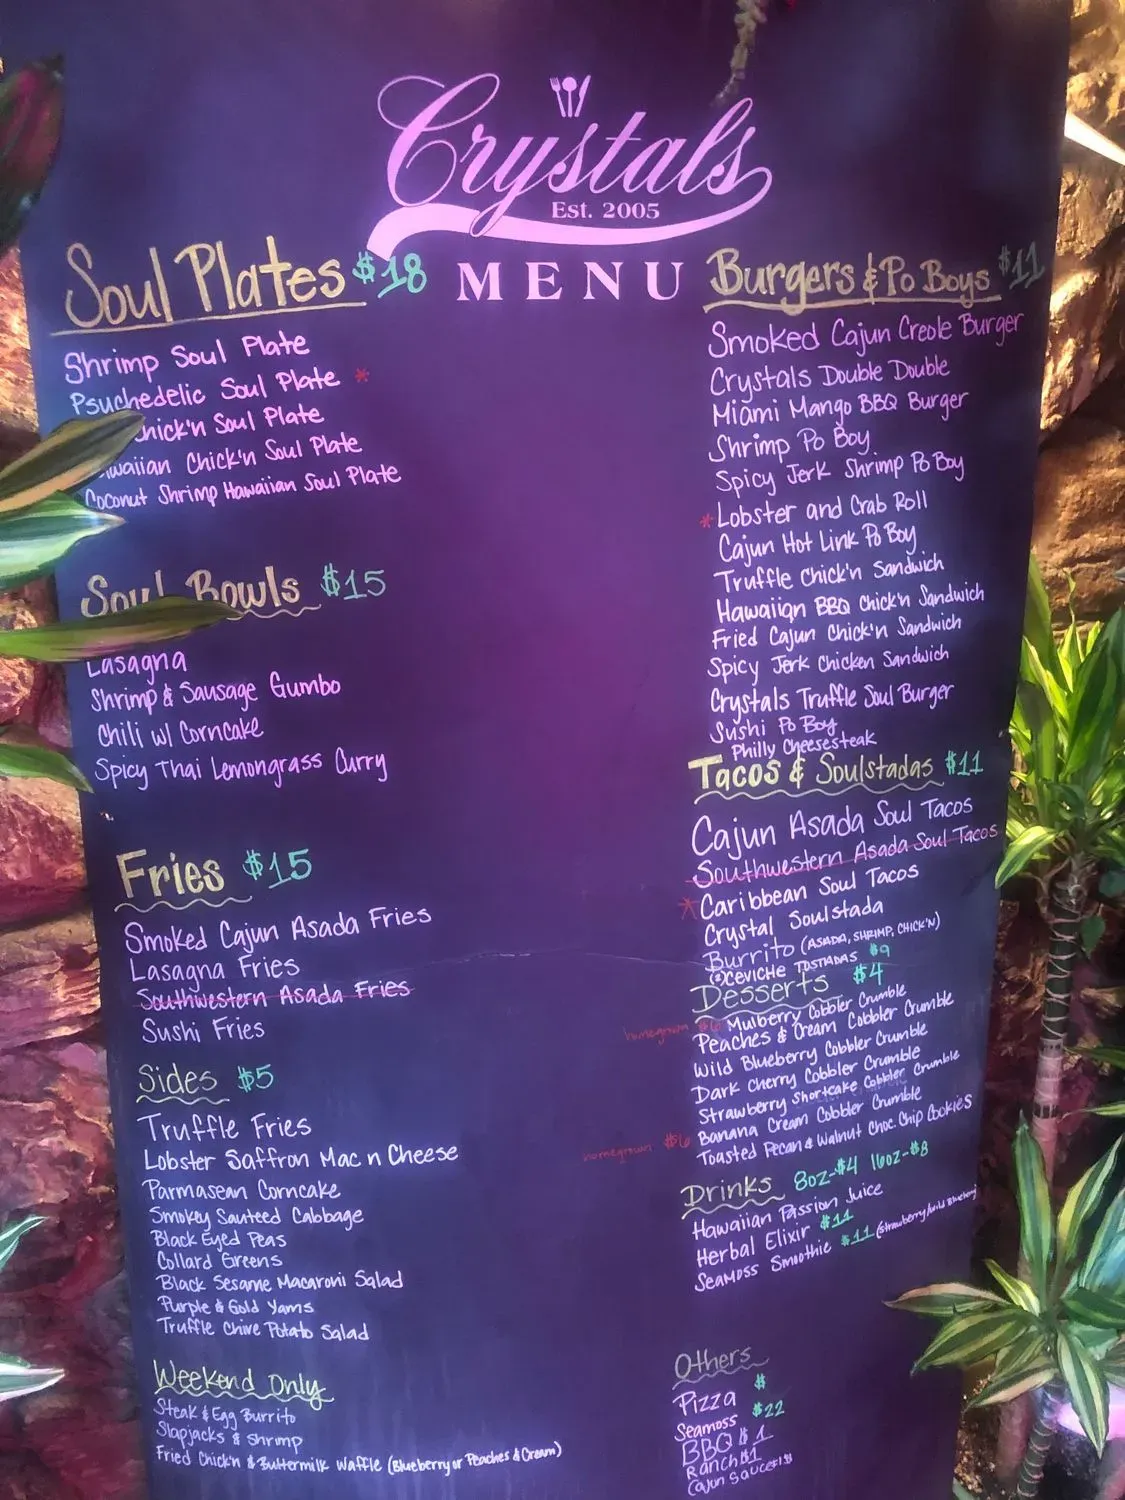 Crystals
Est. 2005
MENU
Soul Plates $18
Shrimp Soul Plate
Psychedelic Soul Plate *
Chick'n Soul Plate
Hawaiian Chick'n Soul Plate
Coconut Shrimp Hawaiian Soul Plate
Soul Bowls $15
Lasagna
Shrimp & Sausage Gumbo
Chili w/ Corncake
Spicy Thai Lemongrass Curry
Fries $15
Smoked Cajun Asada Fries
Lasagna Fries
Southwestern Asada Fries
Sushi Fries
Sides $5
Truffle Fries
Lobster Saffron Mac n Cheese
Parmasean Corncake
Smokey Sauteed Cabbage
Black Eyed Peas
Collard Greens
Black Sesame Macaroni Salad
Purple & Gold Yams
Truffle Chive Potato Salad
Weekend Only
Steak & Egg Burrito
Slapjacks & Shrimp
Fried Chick'n & Buttermilk Waffle (Blueberry or Peaches & Cream)
Burgers & Po Boys $11
Smoked Cajun Creole Burger
Crystals Double Double
Miami Mango BBQ Burger
Shrimp Po Boy
Spicy Jerk Shrimp Po Boy
* Lobster and Crab Roll
Cajun Hot Link Po Boy
Truffle Chick'n Sandwich
Hawaiian BBQ Chick'n Sandwich
Fried Cajun Chick'n Sandwich
Spicy Jerk Chicken Sandwich
Crystals Truffle Soul Burger
Sushi Po Boy
Philly Cheesesteak
Tacos & Soulstadas $11
Cajun Asada Soul Tacos
Southwestern Asada Soul Tacos
* Caribbean Soul Tacos
Crystal Soulstada
Burrito (ASADA, SHRIMP, CHICK'N)
(2) CEVICHE TOSTADAS $9
Desserts $4
homegrown $6 Mulberry Cobbler Crumble
Peaches & Cream Cobbler Crumble
Wild Blueberry Cobbler Crumble
Dark Cherry Cobbler Crumble
Strawberry Shortcake Cobbler Crumble
homegrown $6 Banana Cream Cobbler Crumble
Toasted Pecan & Walnut Choc. Chip Cookies
Drinks 8oz-$4 16oz-$8
Hawaiian Passion Juice
Herbal Elixir $11
Seamoss Smoothie $11 (Strawberry/Wild Blueberry)
Others
Pizza $
Seamoss $22
BBQ $1
Ranch $1
Cajun Sauce $1